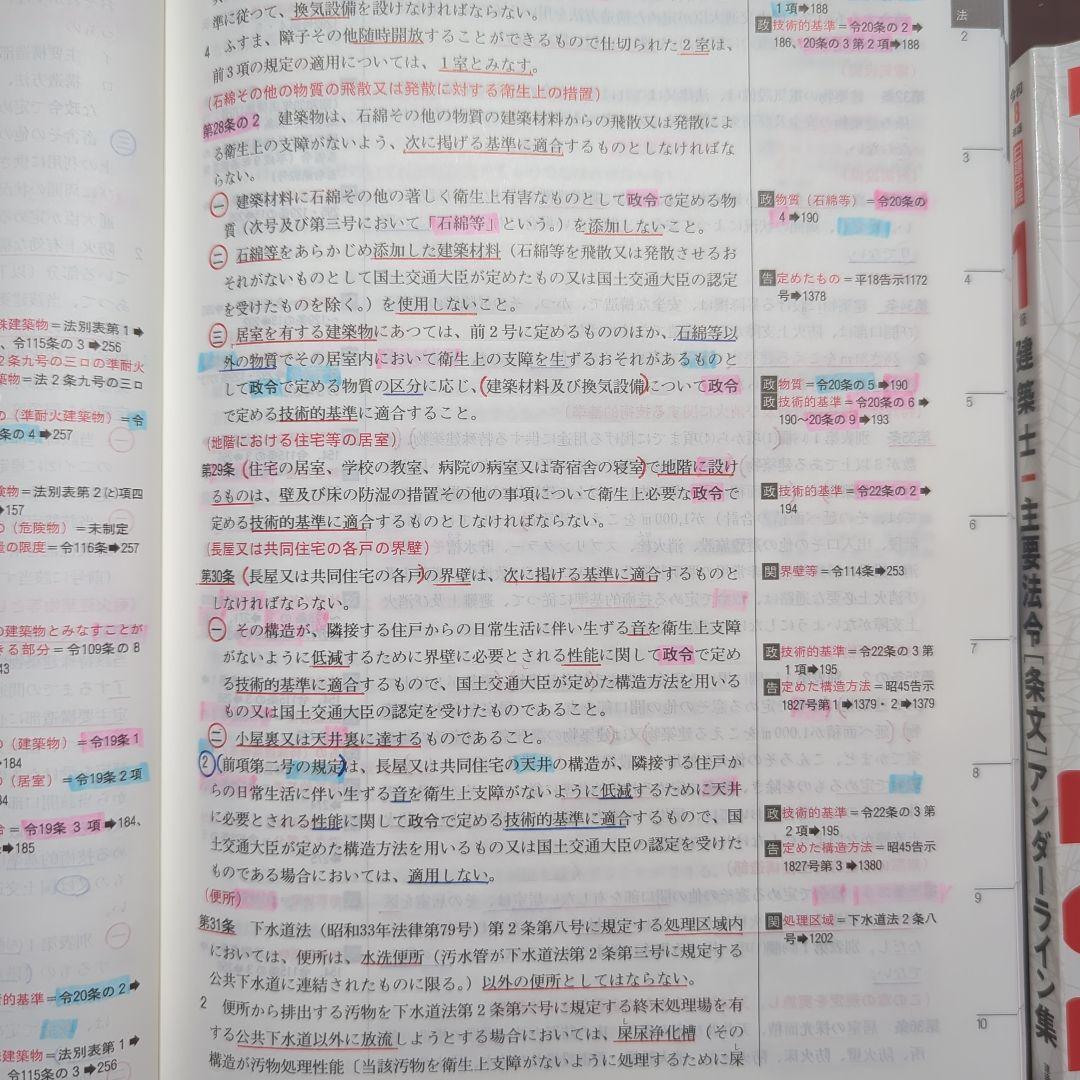 準に従つて、換気設備を設けなければならない。
4 ふすま、障子その他随時開放することができるもので仕切られた2室は、
前3項の規定の適用については、1室とみなす。
(石綿その他の物質の飛散又は発散に対する衛生上の措置)
第28条の2 建築物は、石綿その他の物質の建築材料からの飛散又は発散によ
る衛生上の支障がないよう、次に掲げる基準に適合するものとしなければな
らない。
一 建築材料に石綿その他の著しく衛生上有害なものとして政令で定める物
質(次号及び第三号において「石綿等」という。)を添加しないこと。
二 石綿等をあらかじめ添加した建築材料(石綿等を飛散又は発散させるお
それがないものとして国土交通大臣が定めたもの又は国土交通大臣の認定
を受けたものを除く。)を使用しないこと。
三 居室を有する建築物にあつては、前2号に定めるもののほか、石綿等以
外の物質でその居室内において衛生上の支障を生ずるおそれがあるものと
して政令で定める物質の区分に応じ、建築材料及び換気設備について政令
で定める技術的基準に適合すること。
(地階における住宅等の居室)
第29条 住宅の居室、学校の教室、病院の病室又は寄宿舎の寝室で地階に設け
るものは、壁及び床の防湿の措置その他の事項について衛生上必要な政令で
定める技術的基準に適合するものとしなければならない。
(長屋又は共同住宅の各戸の界壁)
第30条 長屋又は共同住宅の各戸の界壁は、次に掲げる基準に適合するものと
しなければならない。
一 その構造が、隣接する住戸からの日常生活に伴い生ずる音を衛生上支障
がないように低減するために界壁に必要とされる性能に関して政令で定め
る技術的基準に適合するもので、国土交通大臣が定めた構造方法を用いる
もの又は国土交通大臣の認定を受けたものであること。
二 小屋裏又は天井裏に達するものであること。
2 前項第二号の規定は、長屋又は共同住宅の天井の構造が、隣接する住戸か
らの日常生活に伴い生ずる音を衛生上支障がないように低減するために天井
に必要とされる性能に関して政令で定める技術的基準に適合するもので、国
土交通大臣が定めた構造方法を用いるもの又は国土交通大臣の認定を受けた
ものである場合においては、適用しない。
(便所)
第31条 下水道法(昭和33年法律第79号)第2条第八号に規定する処理区域内
においては、便所は、水洗便所(汚水管が下水道法第2条第三号に規定する
公共下水道に連結されたものに限る。)以外の便所としてはならない。
2 便所から排出する汚物を下水道法第2条第六号に規定する終末処理場を有
する公共下水道以外に放流しようとする場合においては、屎尿浄化槽(その
構造が汚物処理性能〔当該汚物を衛生上支障がないように処理するために屎
1項➡188
政技術的基準=令20条の2➡
186、20条の3第2項➡188
政物質(石綿等)=令20条の
4➡190
告定めたもの=平18告示1172
号➡1378
政物質=令20条の5➡190
政技術的基準=令20条の6➡
190~20条の9➡193
政技術的基準=令22条の2➡
194
関界壁等=令114条➡253
政技術的基準=令22条の3第
1項➡195
告定めた構造方法=昭45告示
1827号第1➡1379・2➡1379
政技術的基準=令22条の3第
2項➡195
告定めた構造方法=昭45告示
1827号第3➡1380
関処理区域=下水道法2条八
号➡1202
法
2
3
4
5
6
7
8
9
10
殊建築物=法別表第1➡
、令115条の3➡256
2条九号の三ロの準耐火
築物=法2条九号の三ロ
の(準耐火建築物)=令
条の4➡257
険物=法別表第2(と)項四
➡157
の(危険物)=未制定
量の限度=令116条➡257
の建築物とみなすことが
きる部分=令109条の8
43
の(建築物)=令19条1
➡184
の(居室)=令19条2項
84
合=令19条3項➡184、
➡185
的基準=令20条の2➡
殊建築物=法別表第1➡
115条の3➡256
1
建築士
主要法令[条文]アンダーライン集